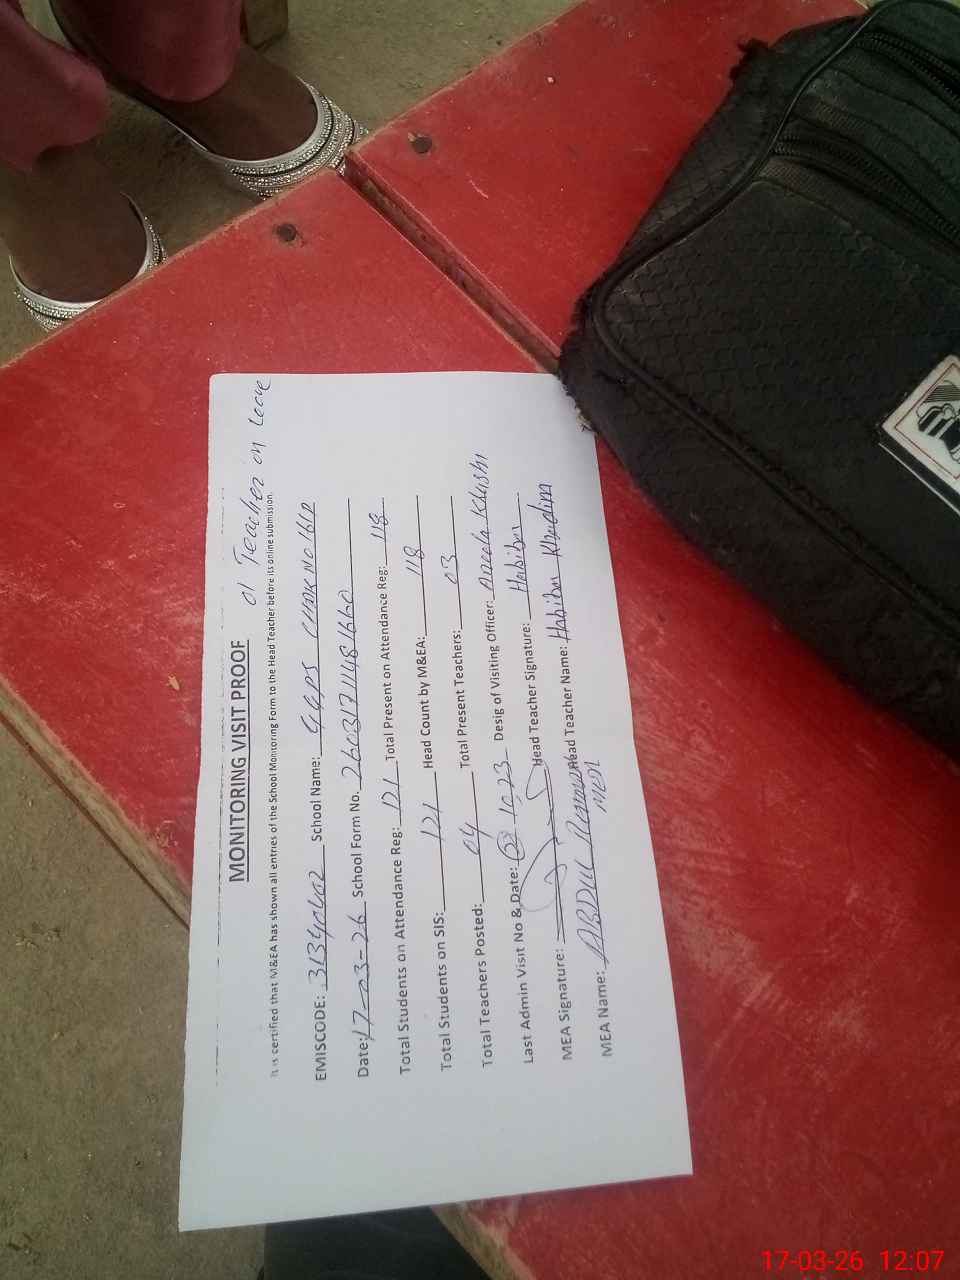 01 Teacher on Leave
MONITORING VISIT PROOF
It is certified that M&EA has shown all entries of the School Monitoring Form to the Head Teacher before its online submission.
EMISCODE: School Name: GGPS CHAK NO 161P
Date: 17-03-26 School Form No.
Total Students on Attendance Reg: 121 Total Present on Attendance Reg: 118
Total Students on SIS: 121 Head Count by M&EA: 118
Total Teachers Posted: 04 Total Present Teachers: 03
Last Admin Visit No & Date: Desig of Visiting Officer: Khushi
MEA Signature: Head Teacher Signature: Habiban
MEA Name: ABDUL Rehman Head Teacher Name: Habiban Khadim
17-03-26 12:07